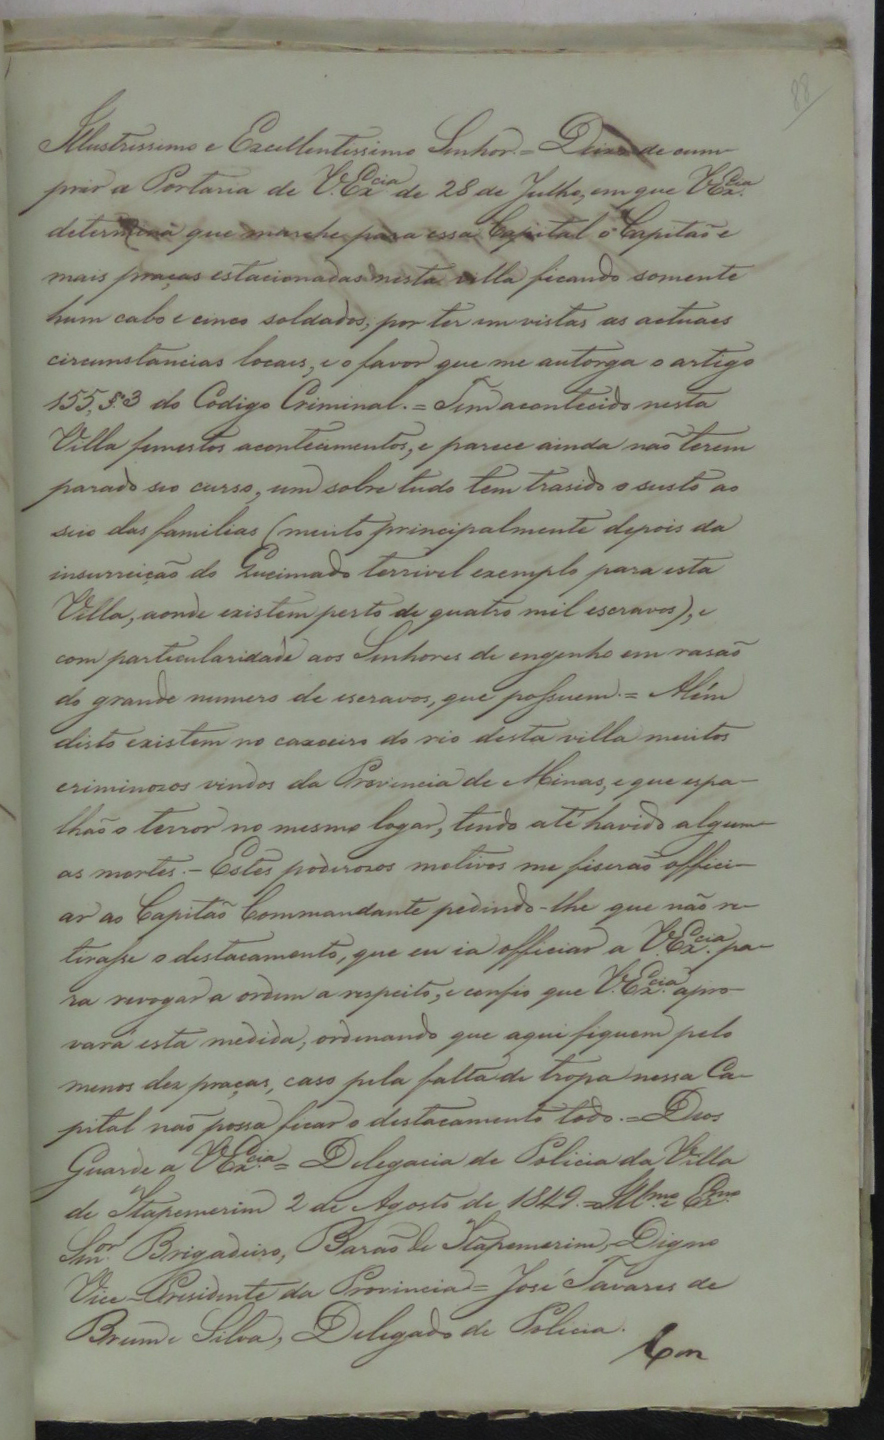 88
Illustrissimo e Excellentissimo Senhor. = Deixo de cum-
prir a Portaria de V.Ex.cia de 28 de Julho, em que V.Ex.cia
determina que marche para essa Capital o Capitão e
mais praças estacionadas nesta villa ficando somente
hum cabo e cinco soldados, por ter em vistas as actuaes
circumstancias locaes, e o favor que me autorga o artigo
155, §. 3 do Codigo Criminal. = Tem acontecido nesta
Villa funestos acontecimentos, e parece ainda não terem
parado seo curso, um sobre tudo tem trasido o susto ao
seio das familias (muito principalmente depois da
insurreição do Queimado terrivel exemplo para esta
Villa, aonde existem perto de quatro mil escravos), e
com particularidade aos Senhores de engenho em rasão
do grande numero de escravos, que possuem. = Além
disto existem no caxoeiro do rio desta villa muitos
criminosos vindos da Provincia de Minas, e que espa-
lhão o terror no mesmo logar, tendo até havido algum-
as mortes. - Estes poderosos motivos me fiserão offici-
ar ao Capitão Commandante pedindo-lhe que não re-
tirasse o destacamento, que eu ia officiar a V.Ex.cia pa-
ra revogar a ordem a respeito, e confio que V.Ex.cia apro-
vará esta medida, ordenando que aqui fiquem pelo
menos dez praças, caso pela falta de tropa nessa Ca-
pital não possa ficar o destacamento todo. = Deos
Guarde a V.Ex.cia = Delegacia de Policia da Villa
de Itapemerim 2 de Agosto de 1849. = Ill.mo e Ex.mo
Snr.or Brigadeiro, Barão de Itapemerim, Digno
Vice-Presidente da Provincia = José Tavares de
Brum e Silva, Delegado de Policia.
Con